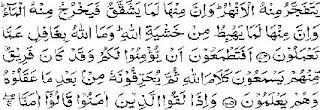 يَتَفَجَّرُ مِنْهُ الْأَنْهٰرُ وَإِنَّ مِنْهَا لَمَا يَشَّقَّقُ فَيَخْرُجُ مِنْهُ الْمَآءُ
وَإِنَّ مِنْهَا لَمَا يَهْبِطُ مِنْ خَشْيَةِ اللّٰهِ وَمَا اللّٰهُ بِغَافِلٍ عَمَّا
تَعْمَلُونَ أَفَتَطْمَعُونَ أَنْ يُؤْمِنُوا لَكُمْ وَقَدْ كَانَ فَرِيقٌ
مِنْهُمْ يَسْمَعُونَ كَلَامَ اللّٰهِ ثُمَّ يُحَرِّفُونَهُ مِنْ بَعْدِ مَا عَقَلُوهُ
وَهُمْ يَعْلَمُونَ وَإِذَا لَقُوا الَّذِينَ آمَنُوا قَالُوا آمَنَّا